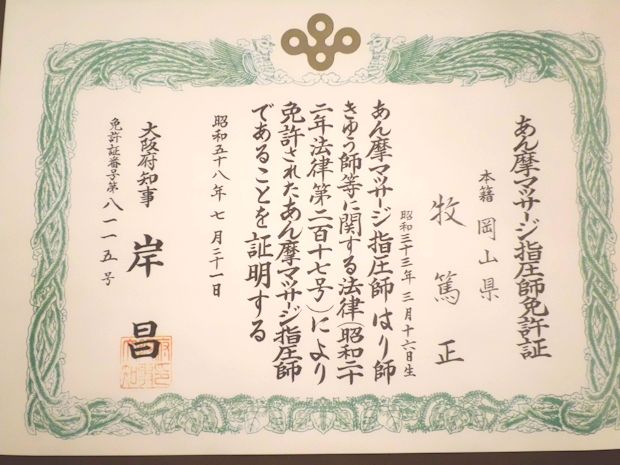 あん摩マッサージ指圧師免許証
本籍 岡山県
牧篤正
昭和三十三年三月十六日生
あん摩マッサージ指圧師 はり師
きゆう師等に関する法律(昭和二十
二年法律第二百十七号)により
免許されたあん摩マッサージ指圧師
であることを証明する
昭和五十八年七月二十一日
大阪府知事 岸昌
免許証番号第八一一五号